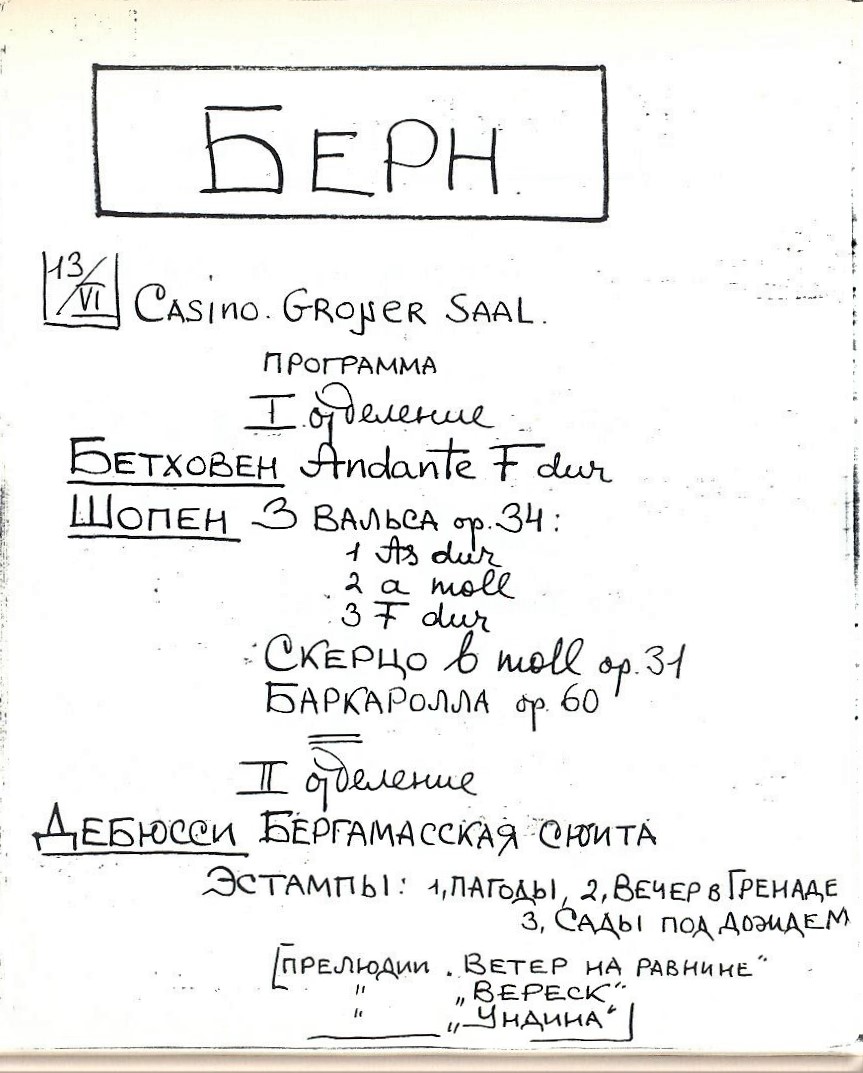 БЕРН
13/VI Casino. Großer Saal.
ПРОГРАММА
I отделение
БЕТХОВЕН Andante F dur
ШОПЕН 3 ВАЛЬСА op. 34:
1 As dur
2 a moll
3 F dur
СКЕРЦО b moll op. 31
БАРКАРОЛЛА op. 60
II отделение
ДЕБЮССИ БЕРГАМАССКАЯ СЮИТА
ЭСТАМПЫ: 1, ПАГОДЫ, 2, ВЕЧЕР в ГРЕНАДЕ
3, САДЫ ПОД ДОЖДЕМ
[ПРЕЛЮДИИ „ВЕТЕР НА РАВНИНЕ"
" „ВЕРЕСК"
" „УНДИНА"]